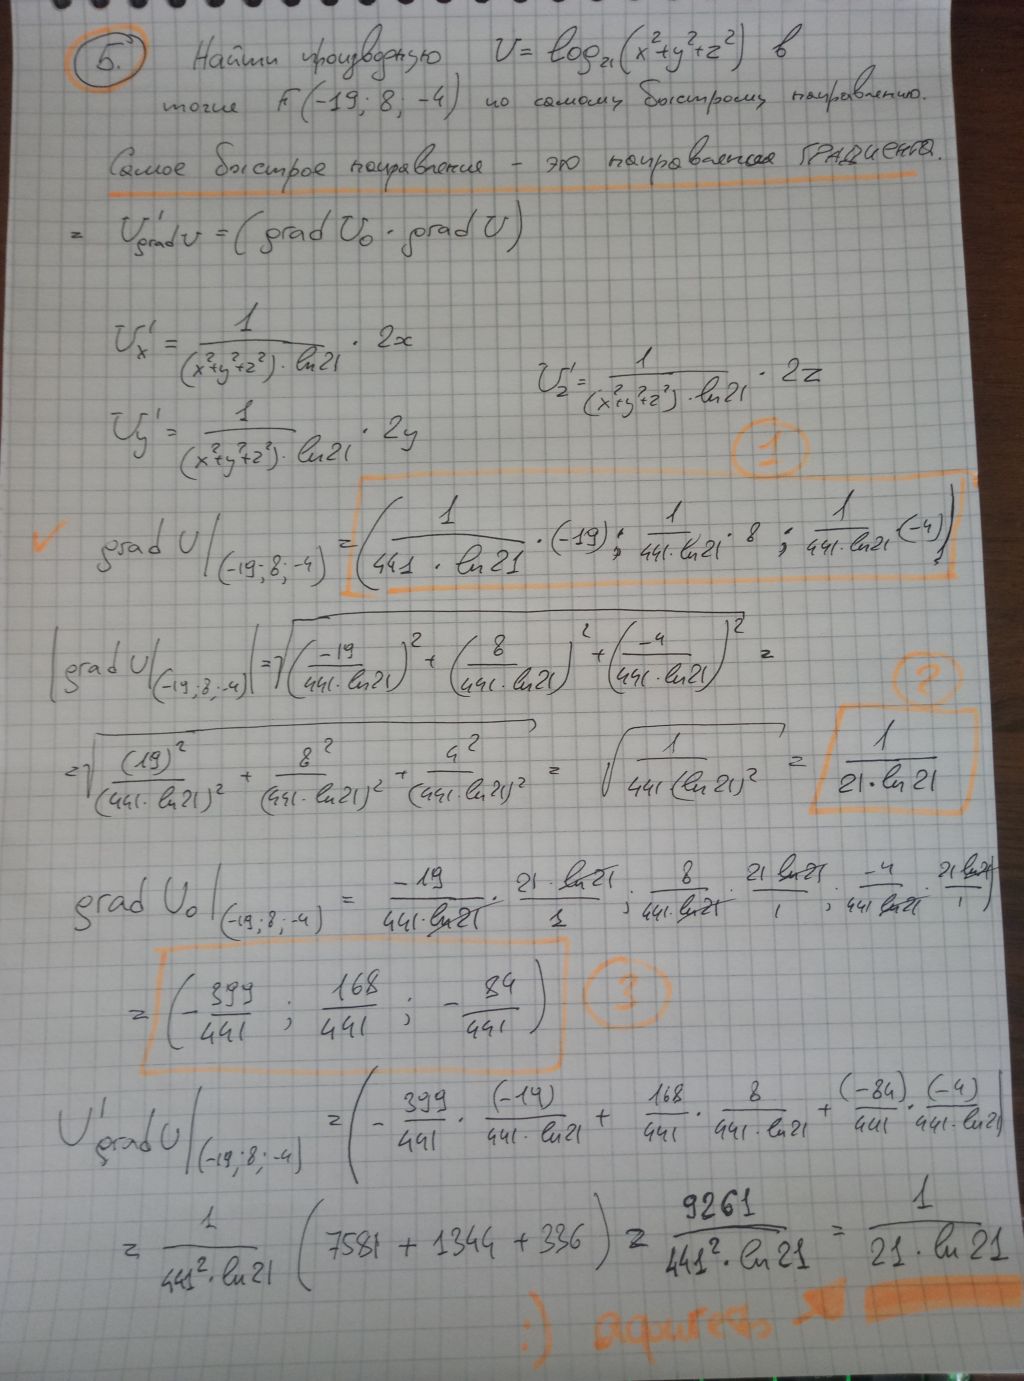 5. Найти производную U = log₂₁(x²+y²+z²) в
точке F(-19; 8; -4) по самому быстрому направлению.
Самое быстрое направление - это направление ГРАДИЕНТА.
= U'grad U = (grad U₀ · grad U)
U'x = 1/((x²+y²+z²)·ln21) · 2x
U'z = 1/((x²+y²+z²)·ln21) · 2z
U'y = 1/((x²+y²+z²)·ln21) · 2y
1
grad U|(-19; 8; -4) = (1/(441·ln21)·(-19); 1/(441·ln21)·8; 1/(441·ln21)(-4))
|grad U|(-19; 8; -4)| = √((-19/(441·ln21))² + (8/(441·ln21))² + (-4/(441·ln21))²) =
2
= √((19)²/(441·ln21)² + 8²/(441·ln21)² + 4²/(441·ln21)²) = √(1/(441(ln21)²)) = 1/(21·ln21)
grad U₀|(-19; 8; -4) = -19/(441·ln21) · 21·ln21/1; 8/(441·ln21) · 21 ln21/1; -4/(441 ln21) · 21 ln21/1)
= (-399/441; 168/441; -84/441)
3
U'grad U|(-19; 8; -4) = (-399/441 · (-19)/(441·ln21) + 168/441 · 8/(441·ln21) + (-84)/441 · (-4)/(441·ln21))
= 1/(441²·ln21) (7581 + 1344 + 336) = 9261/(441²·ln21) = 1/(21·ln21)
:)